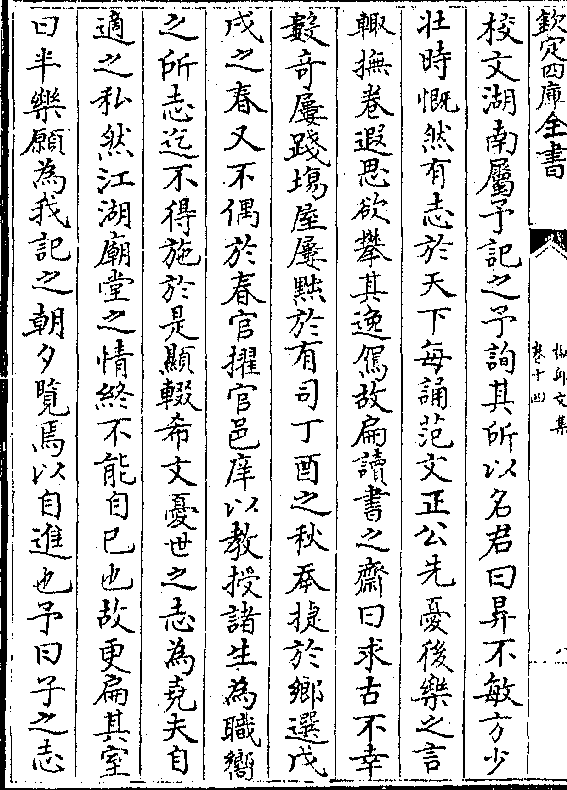 欽定四庫全書
卷十四
校文湖南屬予記之予詢其所以名君曰昇不敏方少
壯時慨然有志於天下每誦范文正公先憂後樂之言
輙撫卷遐思欲攀其逸駕故扁讀書之齋曰求古不幸
數竒屢踐塲屋屢黜於有司丁酉之秋奉捷於鄉選戊
戌之春又不偶於春官擢官邑庠以教授諸生為職嚮
之所志迄不得施於是顯輟希文憂世之志為堯夫自
適之私然江湖廟堂之情終不能自已也故更扁其室
曰半樂願為我記之朝夕覽焉以自進也予曰子之志